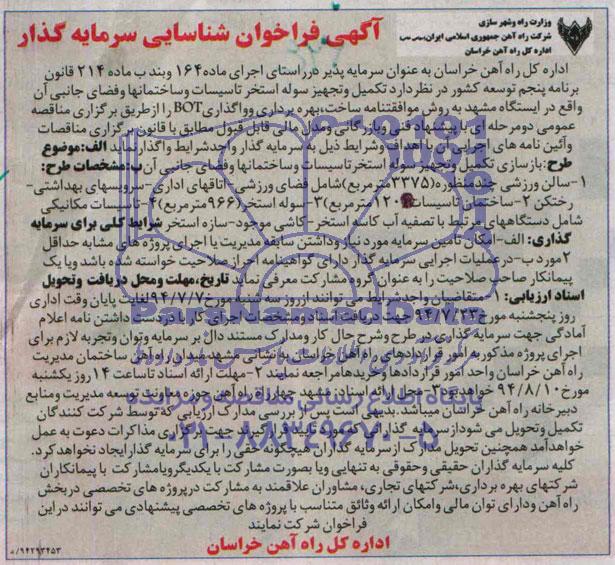 وزارت راه و شهر سازی
شرکت راه آهن جمهوری اسلامی ایران(سهامی خاص)
اداره کل راه آهن خراسان
آگهی فراخوان شناسایی سرمایه گذار
اداره کل راه آهن خراسان به عنوان سرمایه پذیر در راستای اجرای ماده ۱۶۴ وبند ب ماده ۲۱۴ قانون
برنامه پنجم توسعه کشور در نظر دارد تکمیل و تجهیز سوله استخر تاسیسات و ساختمانها وفضای جانبی آن
واقع در ایستگاه مشهد به روش موافقتنامه ساخت،بهره برداری وواگذاری BOT را از طریق برگزاری مناقصه
عمومی دو مرحله ای با پیشنهاد فنی وبازرگانی ومدل مالی قابل قبول مطابق با قانون برگزاری مناقصات
وآئین نامه های اجرایی آن با اهداف وشرایط ذیل به سرمایه گذار واجد شرایط واگذار نماید الف:موضوع
طرح:بازسازی تکمیل وتجهیز سوله استخر تاسیسات و ساختمانها وفضای جانبی آن ب:مشخصات طرح:
۱-سالن ورزشی چندمنظوره(۳۳۷۵مترمربع)شامل فضای ورزشی-اتاقهای اداری-سرویسهای بهداشتی-
رختکن ۲-ساختمان تاسیسات مترمربع)۳-سوله استخر(۹۶۶مترمربع)۴-تاسیسات مکانیکی
شامل دستگاههای مرتبط با تصفیه آب کاسه استخر-کاشی موجود-سازه استخر شرایط کلی برای سرمایه
گذاری: الف-امکان تامین سرمایه مورد نیاز وداشتن سابقه مدیریت یا اجرای پروژه های مشابه حداقل
۲مورد ب-در عملیات اجرایی سرمایه گذار دارای گواهینامه احراز صلاحیت خواسته شده باشد ویا یک
پیمانکار صاحب صلاحیت را به عنوان گروه مشارکت معرفی نماید تاریخ،مهلت ومحل دریافت وتحویل
اسناد ارزیابی: ۱-متقاضیان واجد شرایط می توانند از روز سه شنبه مورخ ۹۴/۷/۷ لغایت پایان وقت اداری
روز پنجشنبه مورخ ۹۴/۷/۲۳ جهت دریافت اسناد ومشخصات اجرای کار با در دست داشتن نامه اعلام
آمادگی جهت سرمایه گذاری در طرح وشرح حال کار ومدارک مستند دال بر سرمایه وتوان وتجربه لازم برای
اجرای پروژه مذکور به امور قراردادهای راه آهن خراسان به نشانی مشهد میدان راه آهن ساختمان مدیریت
راه آهن خراسان واحد امور قراردادها وخریدها مراجعه نمایند ۲-مهلت ارائه اسناد تا ساعت ۱۴ روز یکشنبه
مورخ ۹۴/۸/۱۰ خواهد بود ۳-محل ارائه اسناد مشهد چهارراه راه آهن حوزه معاونت توسعه مدیریت ومنابع
دبیرخانه راه آهن خراسان میباشد.بدیهی است پس از بررسی مدارک ارزیابی که توسط شرکت کنندگان
تکمیل وتحویل می شود از سرمایه گذارانی که مورد تایید قرار گیرند جهت برگزاری مذاکرات دعوت به عمل
خواهد آمد همچنین تحویل مدارک از سرمایه گذاران هیچگونه حقی را برای سرمایه گذار ایجاد نخواهد کرد.
کلیه سرمایه گذاران حقیقی وحقوقی به تنهایی ویا بصورت مشارکت با یکدیگر ویا مشارکت با پیمانکاران
شرکتهای بهره برداری،شرکتهای تجاری،مشاوران علاقمند به مشارکت در پروژه های تخصصی در بخش
راه آهن ودارای توان مالی وامکان ارائه وثائق متناسب با پروژه های تخصصی پیشنهادی می توانند در این
فراخوان شرکت نمایند
اداره کل راه آهن خراسان
۹۴۲۹۳۴۵۳/م
ParsNamadData
پایگاه اطلاع رسانی مناقصه و مزایده
۰۲۱-۸۸۳۴۹۶۷۰-۵